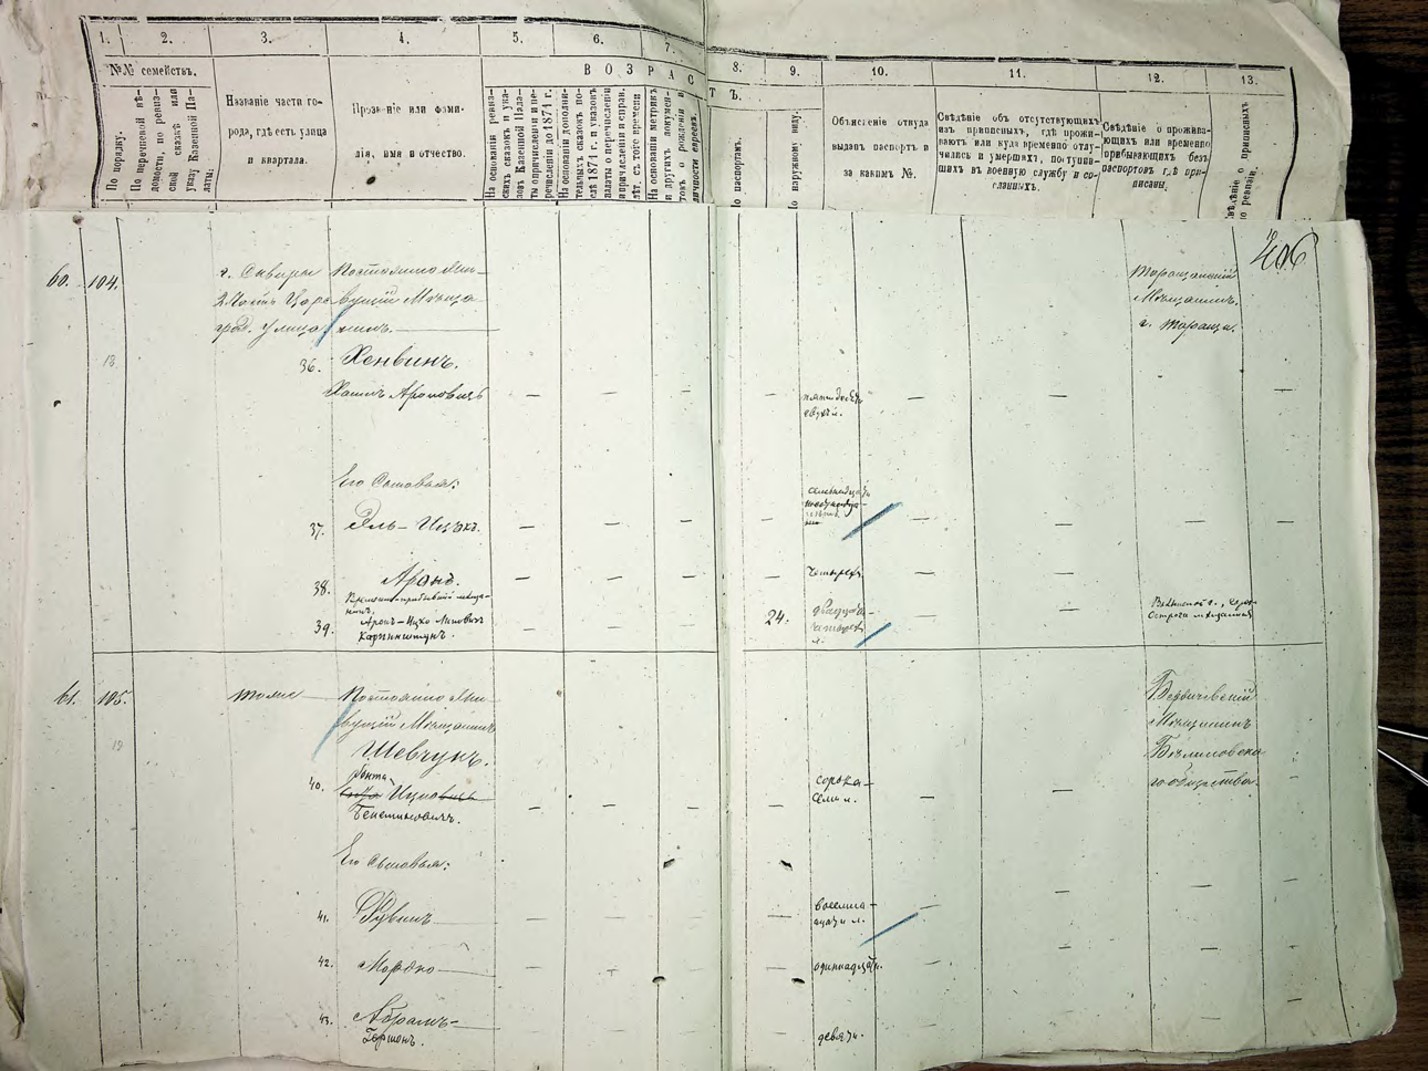 1. 2. 3. 4. 5. 6. 7. 8. 9. 10. 11. 12. 13.
№№ семействъ.
По порядку.
По перечневой вѣ-
домости, по ревиз-
ской сказкѣ или
указу Казенной Па-
латы:
Названіе части го-
рода, гдѣ есть улица
и квартала.
Прозваніе или фами-
лія, имя и отчество.
ВОЗРАСТЪ.
На основаніи ревиз-
скихъ сказокъ и ука-
зовъ Казенной Пала-
ты о причисленіи и пе-
речисленіи до 1874 г.
На основаніи дополни-
тельныхъ сказокъ по-
слѣ 1874 г. и указовъ
палаты о перечисленіи
и причисленіи и справ.
лѣт. съ того времени
На основаніи метрик.
и другихъ докумен-
товъ о рожденіи и
личности евреевъ.
По паспортамъ.
По наружному виду.
Объясненіе откуда
выданъ паспортъ и
за какимъ №.
Свѣдѣніе объ отсутствующихъ
изъ приписныхъ, гдѣ прожи-
ваютъ или куда временно отлу-
чились и умершихъ, поступив-
шихъ въ военную службу и со-
сланныхъ.
Свѣдѣніе о прожива-
ющихъ или временно
прибывающихъ безъ
паспортовъ гдѣ при-
писаны.
Свѣдѣніе о приписныхъ
по ревизіи.
406
60. 104. г. Сквира Постоянно жи- Таращанскій
2 Часть Царе вущій Мѣща- Мѣщанинъ.
град. улица нинъ. г. Тараща.
13 36. Хенвинъ.
Хаимъ Ароновичъ — — — — пятьдесятъ — — —
двухъ л.
Его Сыновья:
37. Эль-Ицекъ. — — — — — — — —
38. Аронъ. — — — четырехъ — —
Временно-прибывшій мѣща-
нинъ.
39. Аронъ-Ицко — — — 24. двадцать — — Волынской г.,
Каршинштунъ. четырехъ Острога мѣщанинъ
л.
61. 105. тоже Постоянно жи- Бердичевскій
вущій Мѣщанинъ Мѣщанинъ
19 Шевчукъ. Бѣлиловска
го общества.
40. Ицковичъ сорока-
Бенетиновичъ. — — — — семи л. — — —
Его сыновья:
41. Рувинъ — — — — восемна- — — — —
дцати л.
42. Мордко — — — — одиннадцати. — — —
43. Абрамъ- — — — — девяти. — — —
Гершонъ.